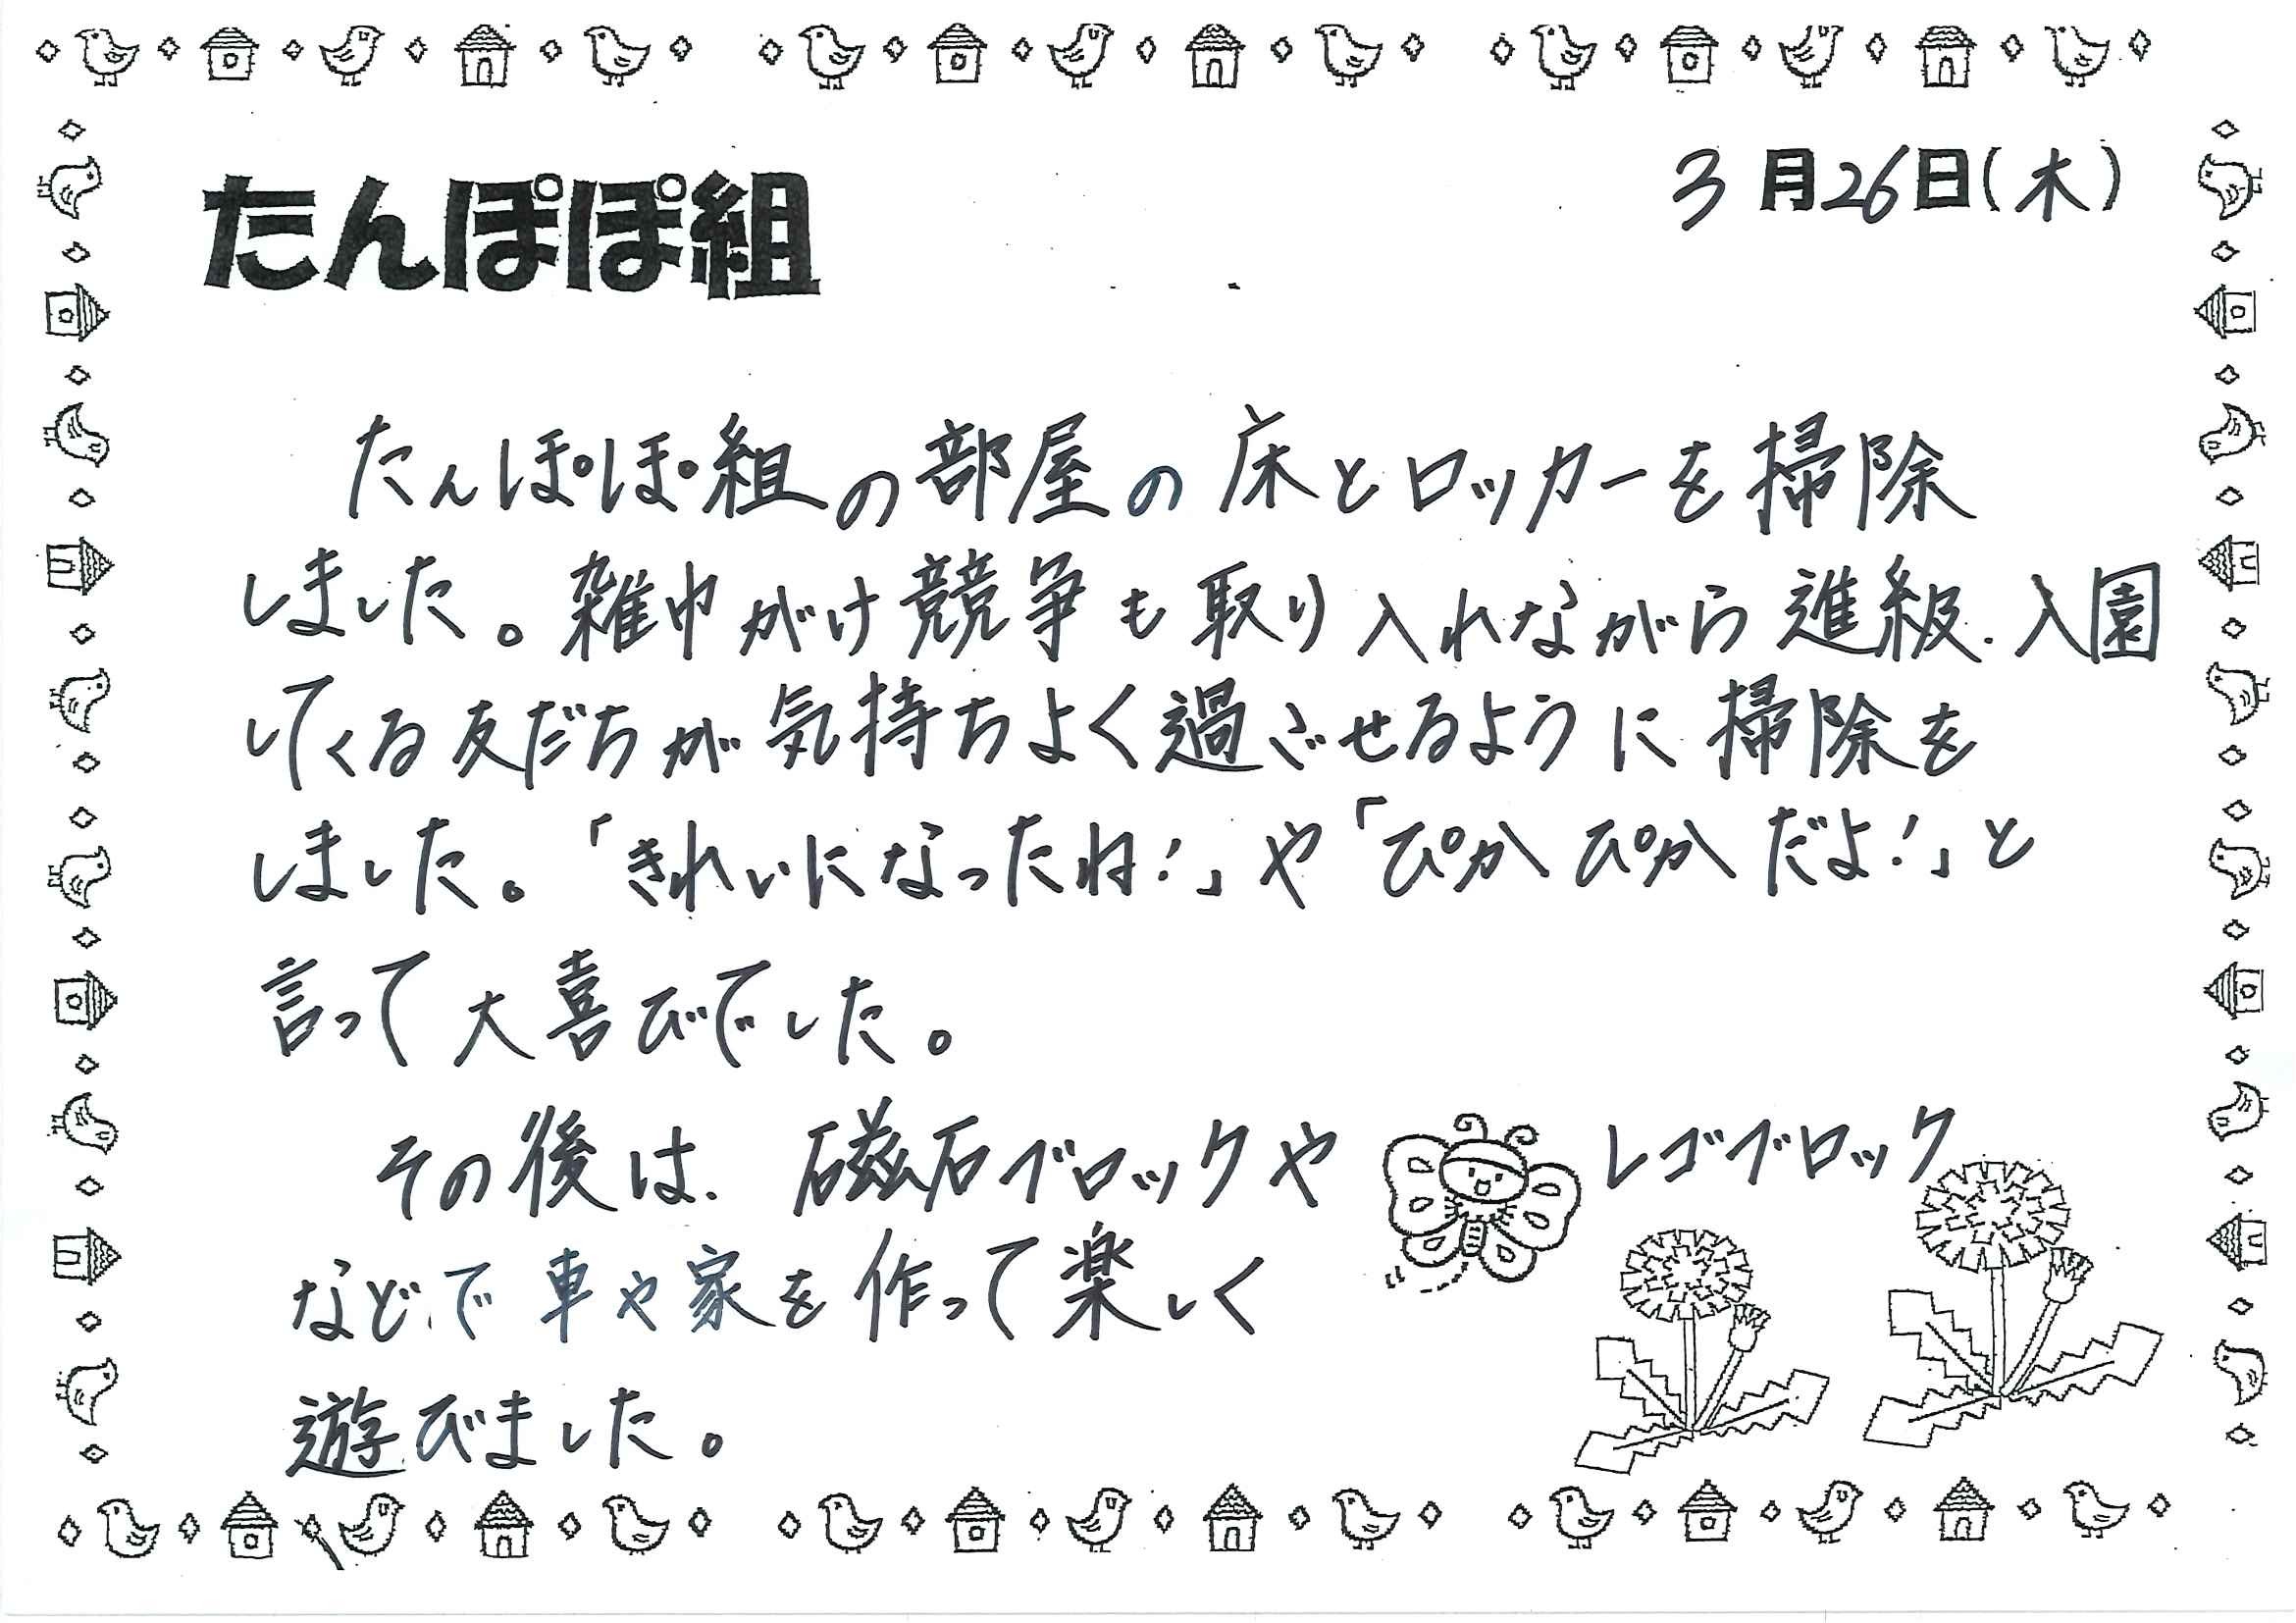 たんぽぽ組
3月26日(木)
たんぽぽ組の部屋の床とロッカーを掃除
しました。雑巾がけ競争も取り入れながら進級、入園
してくる友だちが気持ちよく過ごせるように掃除を
しました。「きれいになったね!」や「ぴかぴかだよ!」と
言って大喜びでした。
その後は、磁石ブロックや レゴブロック
などで車や家を作って楽しく
遊びました。